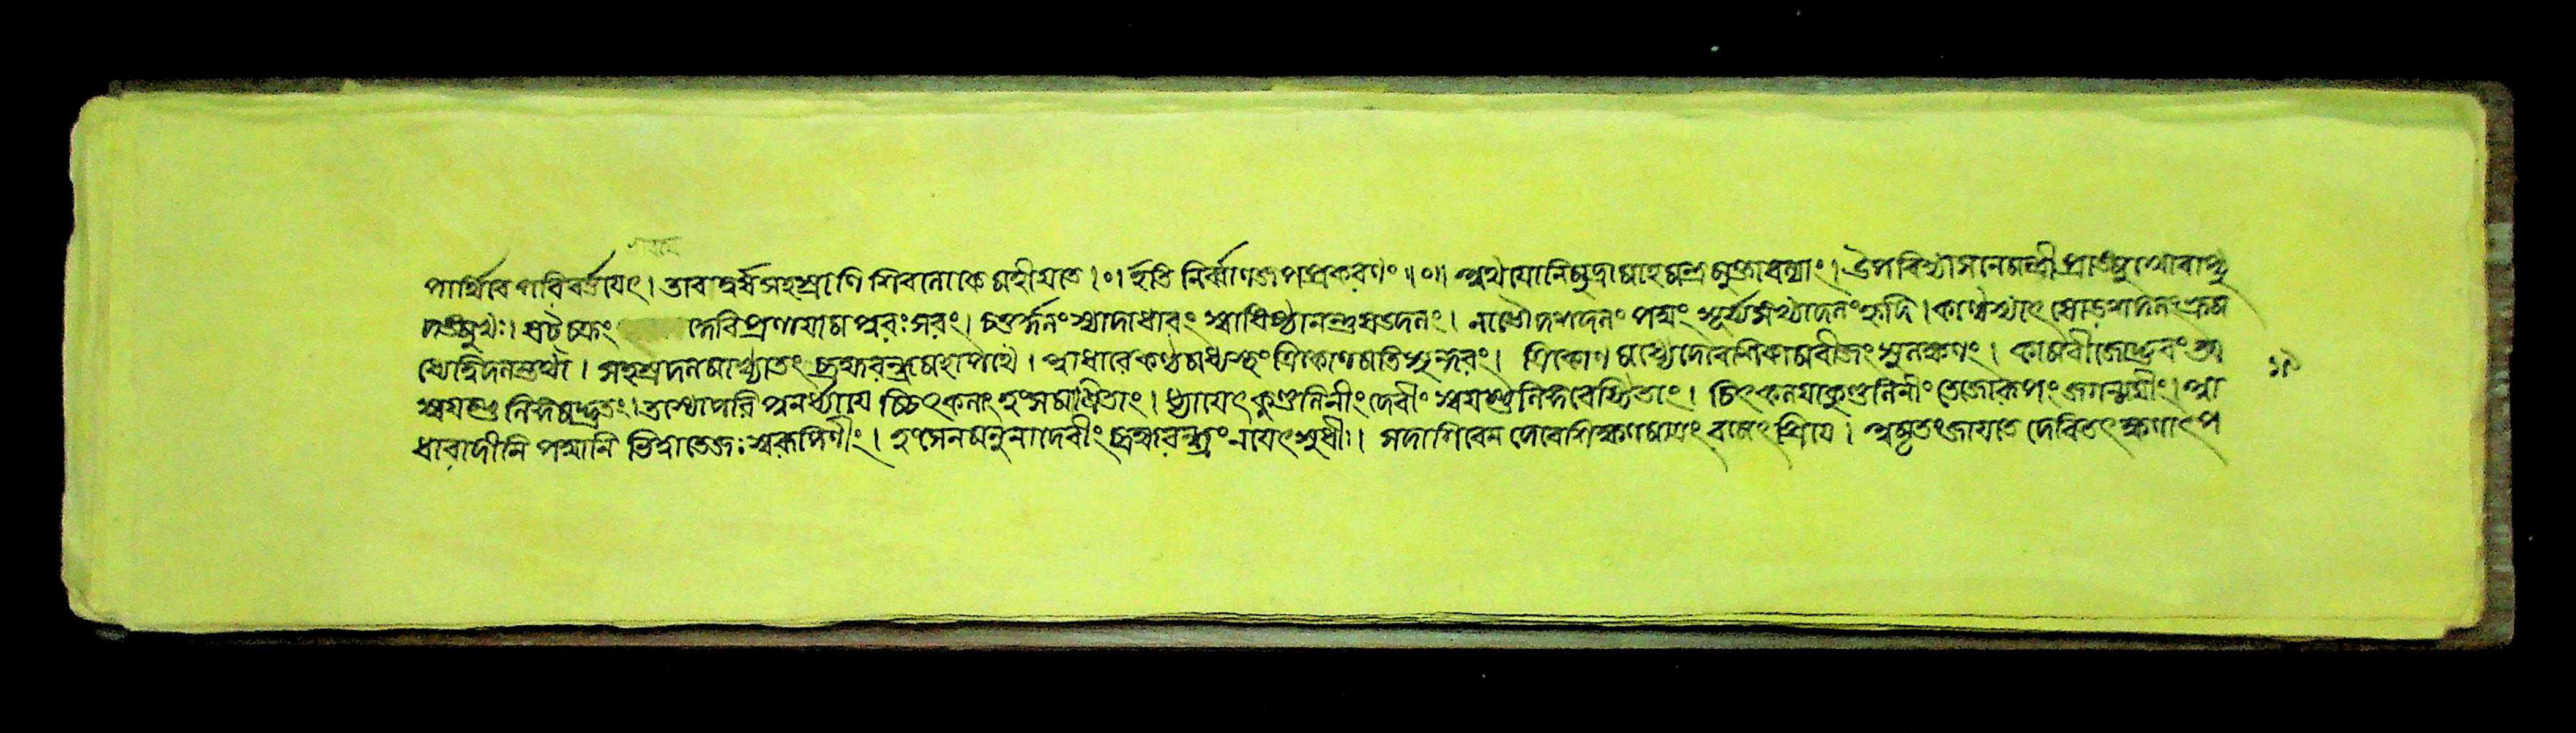 পার্থিবে পরিবর্ত্তয়েৎ। তাবদ্বর্ষসহস্রাণি শিবলোকে মহীয়তে।০। ইতি নির্ব্বাণজপপ্রকরণং॥০॥ অথ যোনিমুদ্রামাহ মন্ত্রমুক্তাবল্যাং। উপবিশ্যাসনে মন্ত্রী প্রাঙ্মুখোবাপ্যু
দঙ্মুখঃ। ষট্চক্রং দেবি প্রণায়াম পুরঃসরং। চতুর্দ্দলং স্যাদাধারং স্বাধিষ্ঠানন্তু ষড্দলং। নাভৌ দশদলং পদ্মং সূর্য্যসংখ্যাদলং হৃদি। কণ্ঠে স্যাৎ ষোড়শদলং ভ্রুম
ধ্যে দ্বিদলন্তথা। সহস্রদলমাখ্যাতং ব্রহ্মরন্ধ্রে মহাপথে। আধারে কন্দমধ্যস্থং ত্রিকোণমতিসুন্দরং। ত্রিকোণমধ্যে দেবেশি কামবীজং সুলক্ষণং। কামবীজোদ্ভবং তত্র
স্বয়ম্ভু লিঙ্গমদ্ভুতং। তস্যোপরি পুনর্ধ্যায়ে চ্চিৎকলাং হংসমাশ্রিতাং। ধ্যায়েৎ কুণ্ডলিনীং দেবীং স্বয়ম্ভুলিঙ্গবেষ্টিতাং। চিৎকলয়া কুণ্ডলিনীং তেজোরূপং জগন্ময়ীং। আ
ধারাদীনি পদ্মানি ভিত্ত্বা তেজঃ স্বরূপিণীং। হংসেন মনুনা দেবীং ব্রহ্মরন্ধ্রং নয়েৎ সুধীঃ। সদাশিবেন দেবেশি ক্ষণমাত্রং রমেৎ প্রিয়ে। অমৃতং জায়তে দেবি তৎক্ষণাৎ প
১৯